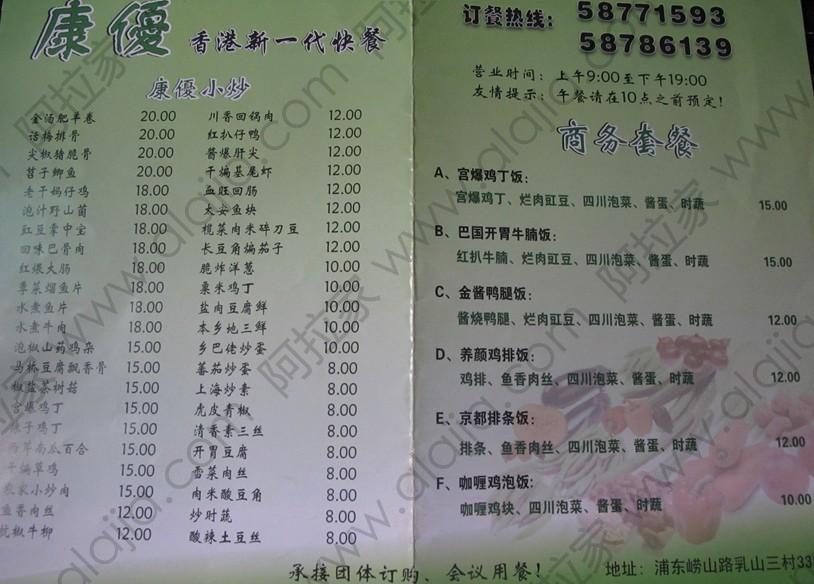 康優 香港新一代快餐
康優小炒
金汤肥羊卷 20.00
话梅排骨 20.00
尖椒猪脆骨 20.00
苕子鲫鱼 20.00
老干妈仔鸡 18.00
泡汁野山菌 18.00
红豆掌中宝 18.00
回味巴骨肉 18.00
红煨大肠 18.00
季菜熘鱼片 18.00
水煮鱼片 18.00
水煮牛肉 18.00
泡椒山药鸡杂 15.00
马桥豆腐飘香骨 15.00
椒盐茶树菇 15.00
宫爆鸡丁 15.00
辣子鸡丁 15.00
西芹南瓜百合 15.00
干煸草鸡 15.00
农家小炒肉 15.00
鱼香肉丝 12.00
杭椒牛柳 12.00
川香回锅肉 12.00
红扒仔鸭 12.00
酱爆肝尖 12.00
干煸基尾虾 12.00
血旺回肠 12.00
太安鱼块 12.00
榄菜肉米碎刀豆 12.00
长豆角煸茄子 12.00
脆炸洋葱 10.00
粟米鸡丁 10.00
盐肉豆腐鲜 10.00
本乡地三鲜 10.00
乡巴佬炒蛋 10.00
蕃茄炒蛋 8.00
上海炒素 8.00
虎皮青椒 8.00
清香素三丝 8.00
开胃豆腐 8.00
雪菜肉丝 8.00
肉米酸豆角 8.00
炒时蔬 8.00
酸辣土豆丝 8.00
承接团体订购、会议用餐！
订餐热线： 58771593
58786139
营业时间：上午9:00至下午19:00
友情提示：午餐请在10点之前预定！
商务套餐
A、宫爆鸡丁饭：
宫爆鸡丁、烂肉豇豆、四川泡菜、酱蛋、时蔬 15.00
B、巴国开胃牛腩饭：
红扒牛腩、烂肉豇豆、四川泡菜、酱蛋、时蔬 15.00
C、金酱鸭腿饭：
酱烧鸭腿、烂肉豇豆、四川泡菜、酱蛋、时蔬 12.00
D、养颜鸡排饭：
鸡排、鱼香肉丝、四川泡菜、酱蛋、时蔬 12.00
E、京都排条饭：
排条、鱼香肉丝、四川泡菜、酱蛋、时蔬 12.00
F、咖喱鸡泡饭：
咖喱鸡块、四川泡菜、酱蛋、时蔬 10.00
地址：浦东崂山路乳山三村33
阿拉家 www.alajia.com